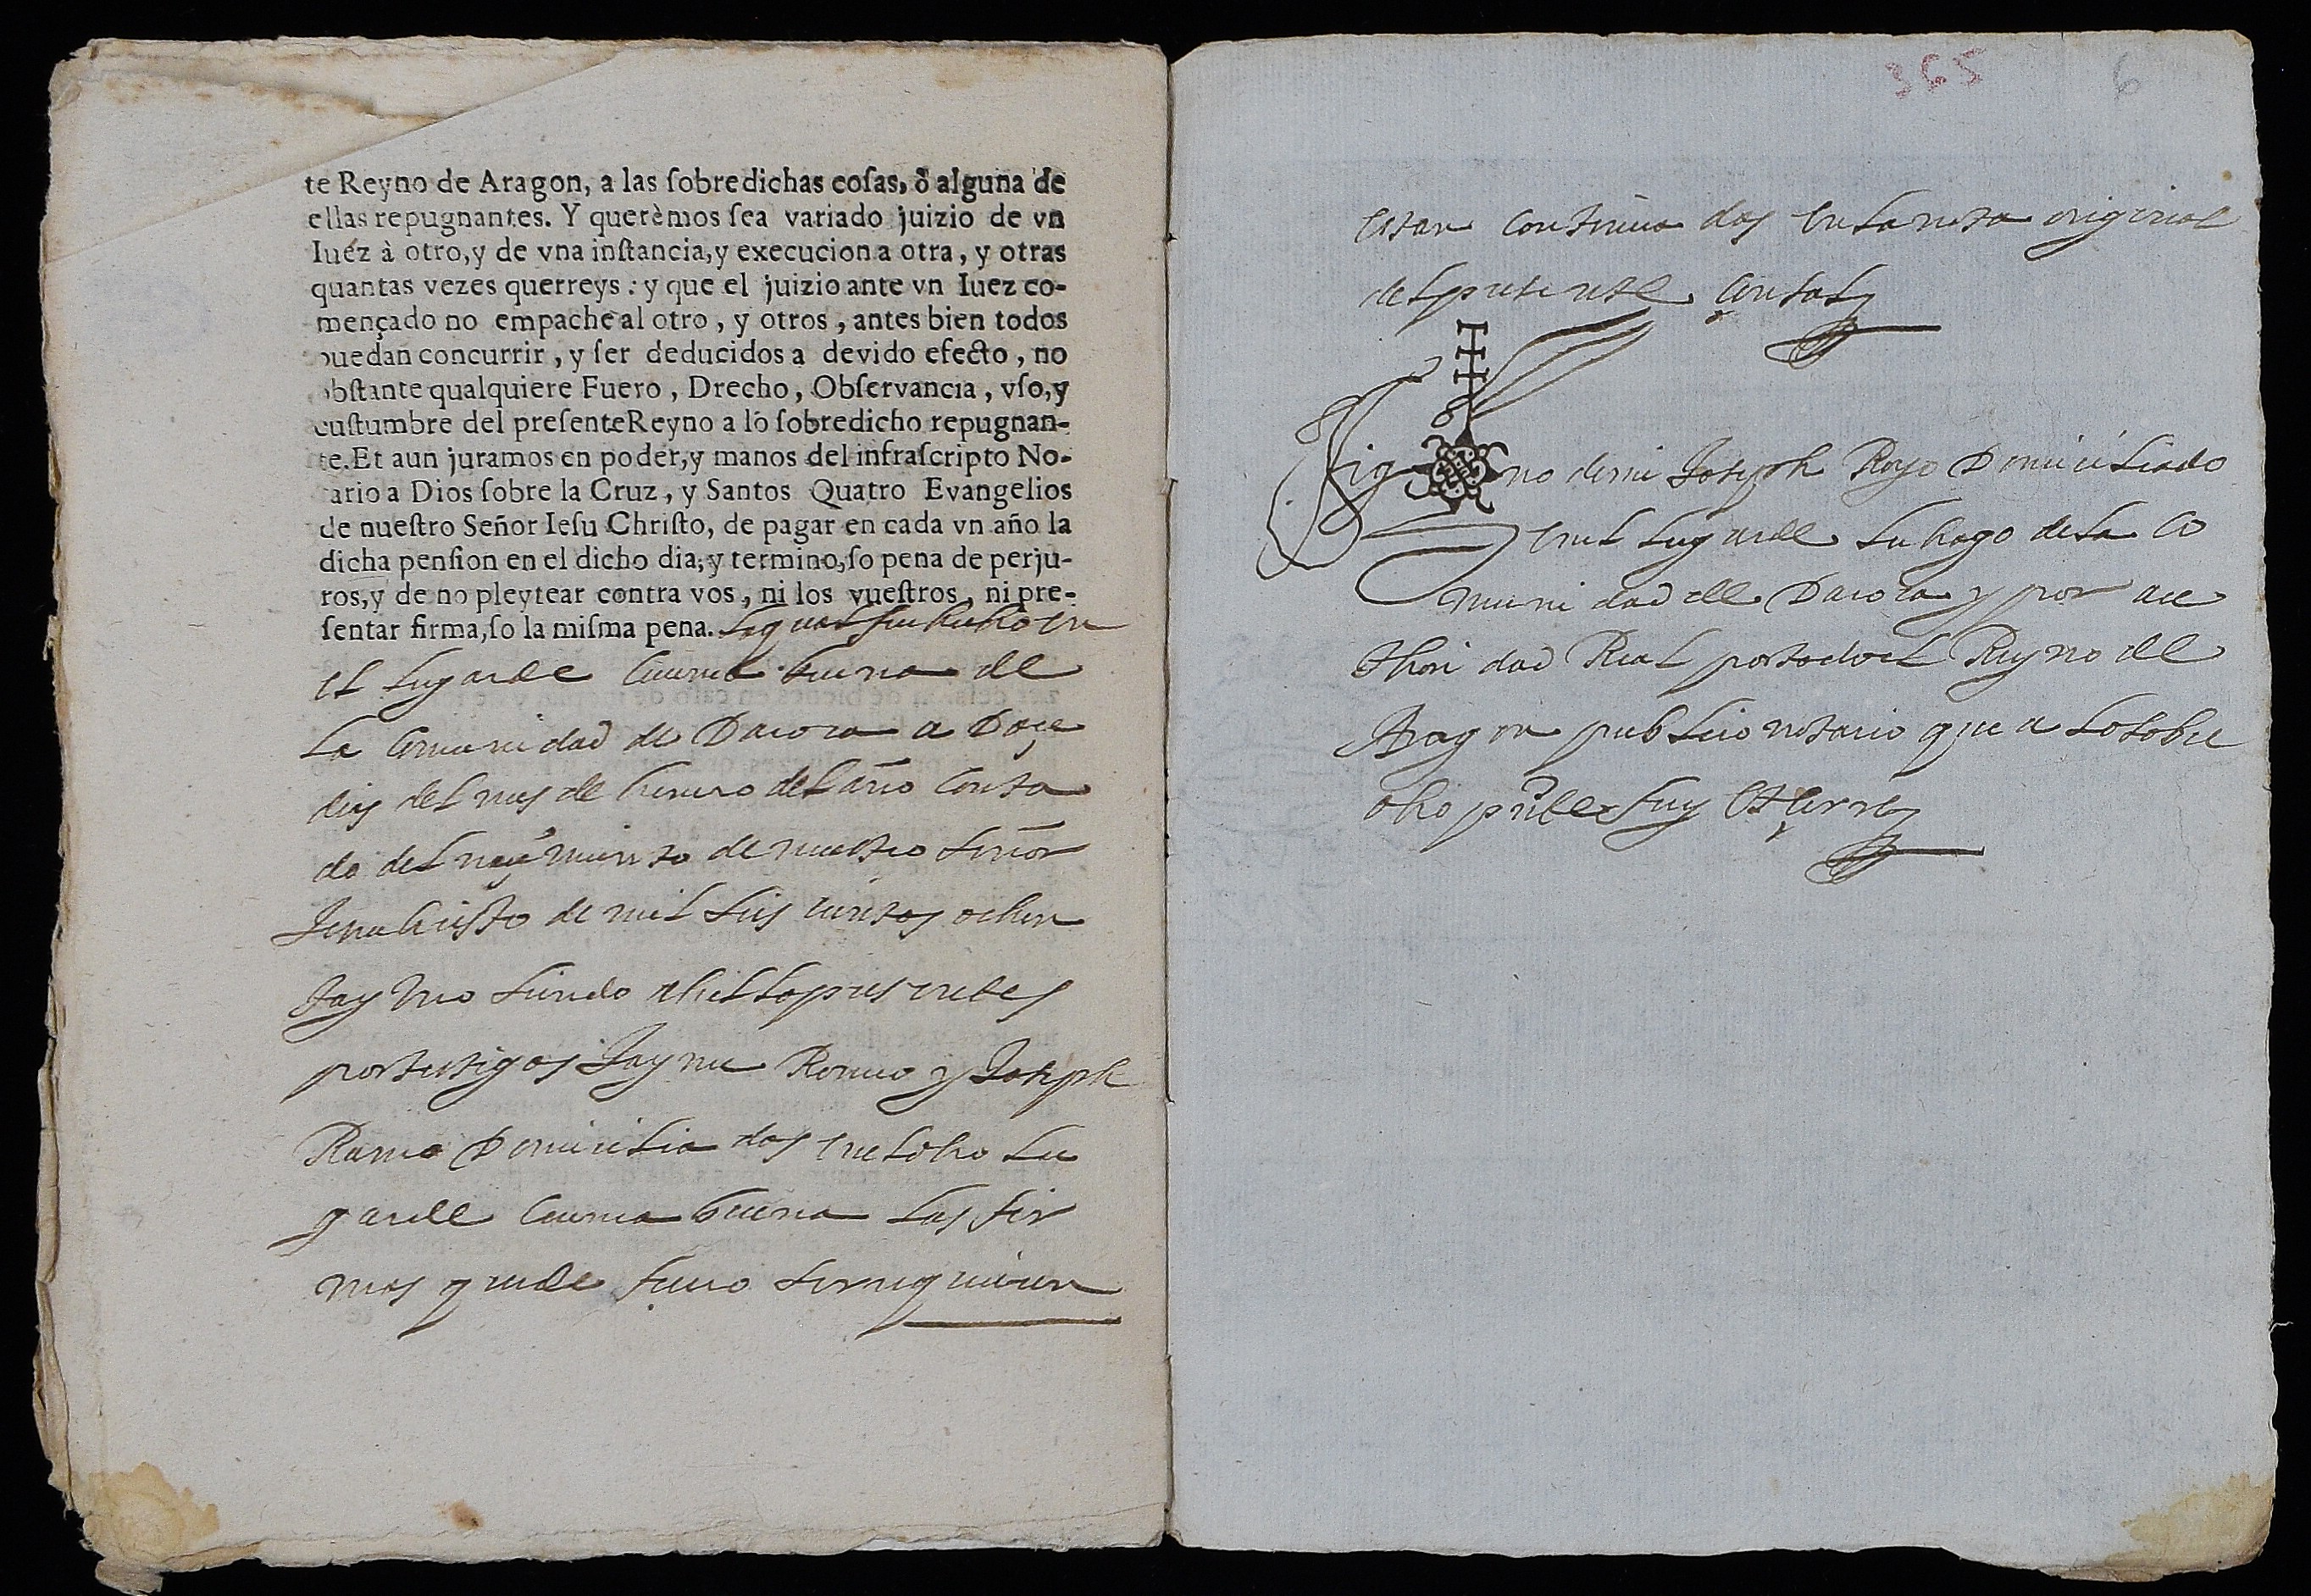 te Reyno de Aragon, a las ſobredichas coſas, ò alguna de
ellas repugnantes. Y querèmos ſea variado juizio de vn
Iuéz à otro, y de vna inſtancia, y execucion a otra, y otras
quantas vezes querreys : y que el juizio ante vn Iuez co-
mençado no empache al otro, y otros, antes bien todos
puedan concurrir, y ſer deducidos a devido efecto, no
obſtante qualquiere Fuero, Drecho, Obſervancia, vſo, y
cuſtumbre del preſente Reyno a lo ſobredicho repugnan-
te. Et aun juramos en poder, y manos del infraſcripto No-
tario a Dios ſobre la Cruz, y Santos Quatro Evangelios
de nueſtro Señor Ieſu Chriſto, de pagar en cada vn año la
dicha penſion en el dicho dia, y termino, ſo pena de perju-
ros, y de no pleytear contra vos, ni los vueſtros, ni pre-
ſentar firma, ſo la miſma pena. Lo qual fue hecho en
el Lugar de Cuenca buena de
la Comunidad de Daroca a Doçe
dias del mes de henero del año Conta
do del naçimiento de nuestro Señor
Jesuchristo de mil seis cientos ochen
ta y uno siendo a ello presentes
por testigos Jayme Romeo y Joseph
Ramo Domiciliados en el dho Lu
gar de Cuenca buena Las fir
mas que de fuero se requieren
365 6
estan continuadas en la nota original
del presente Contal
Sig no de mi Joseph Royo Domiciliado
en el Lugar de Luhago de la Co
munidad de Daroca y por au
thoridad Real por todo el Reyno de
Aragon publico notario que a lo sobre
dho preste fuy et çerre